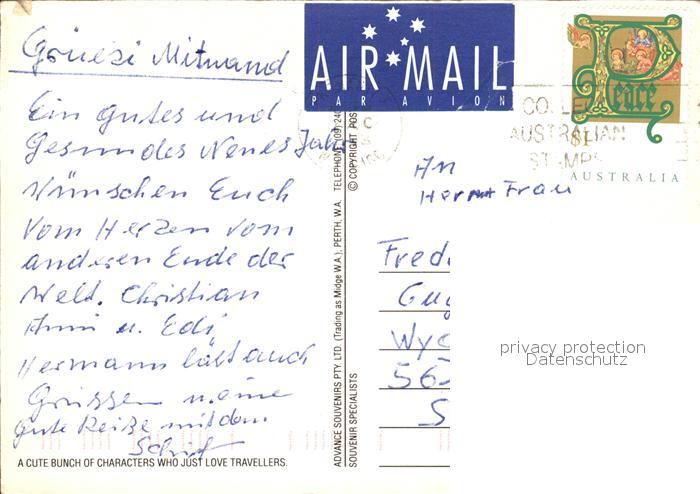 Grüezi Mitnand
Ein gutes und
Gesundes Neues Jahr
Wünschen Euch
Vom Herzen vom
anderen Ende der
Welt. Christian
Anni u. Edi
Hermann läst auch
Grüssen u. eine
gute Reise mit dem
Schiff
A CUTE BUNCH OF CHARACTERS WHO JUST LOVE TRAVELLERS.
ADVANCE SOUVENIRS PTY. LTD. (Trading as Midge W.A.); PERTH, W.A. TELEPHONE (09) 24
SOUVENIR SPECIALISTS © COPYRIGHT POS
AIR MAIL
PAR AVION
Peace
$1
AUSTRALIA
AUSTRALIAN
STAMPS
An
Herr Frau
Fred
Gu
Wy
56
S
privacy protection
Datenschutz